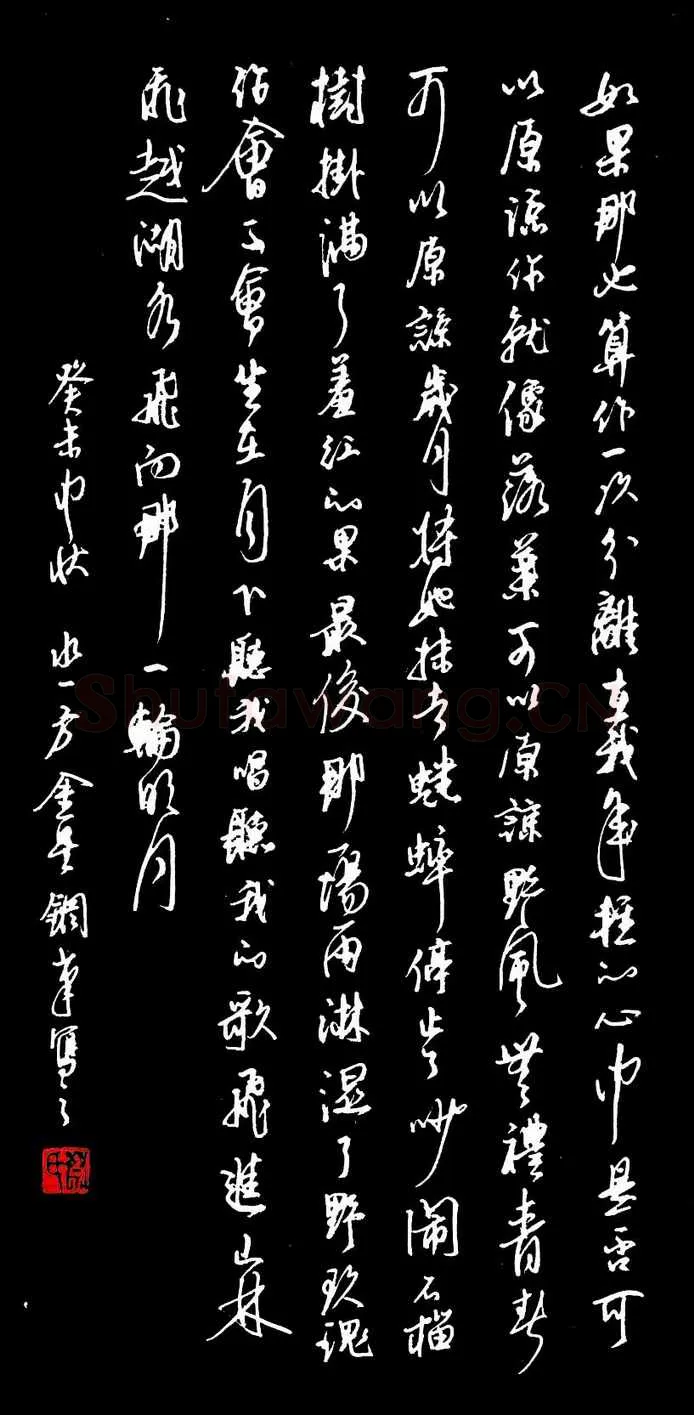 如果那也算作一次分離在我年輕的心中是否可
以原諒你就像落葉可以原諒野風無禮青春
可以原諒歲月將她抹去蟋蟀停止了吵鬧石榴
樹掛滿了羞红的果最後那場雨淋湿了野玫瑰
你會不會坐在月下聽我唱聽我的歌飛進山林
飛越湖水飛向那一輪明月
癸未中秋 水一方 鋼筆寫之
ShufaWang.CN